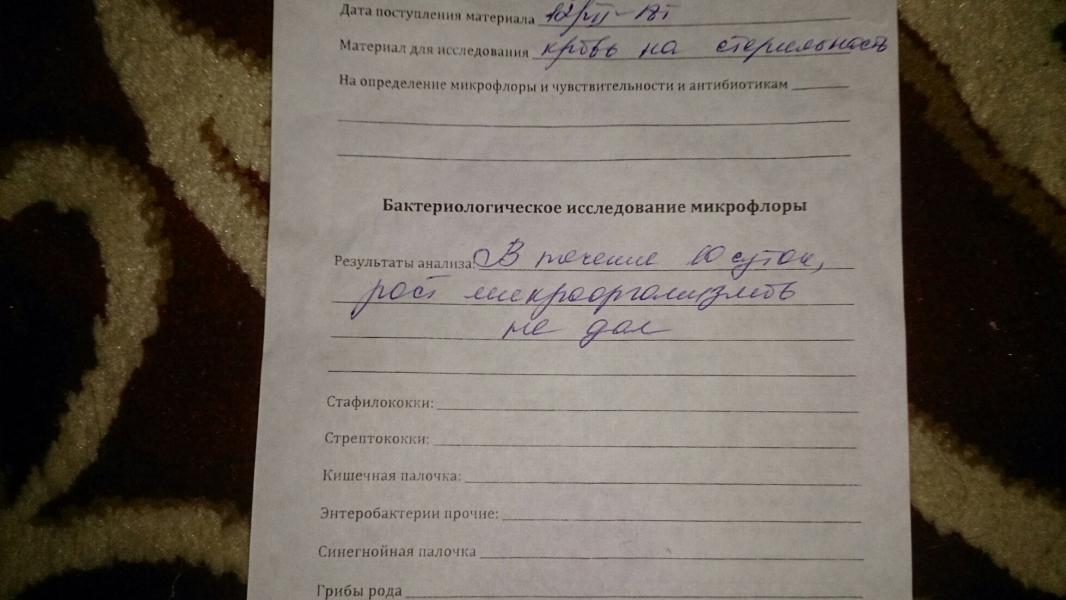 Дата поступления материала 12/VII-18г
Материал для исследования кровь на стерильность
На определение микрофлоры и чувствительности и антибиотикам
Бактериологическое исследование микрофлоры
Результаты анализа: В течение 10 суток,
рост микроорганизмов
не дал
Стафилококки:
Стрептококки:
Кишечная палочка:
Энтеробактерии прочие:
Синегнойная палочка
Грибы рода